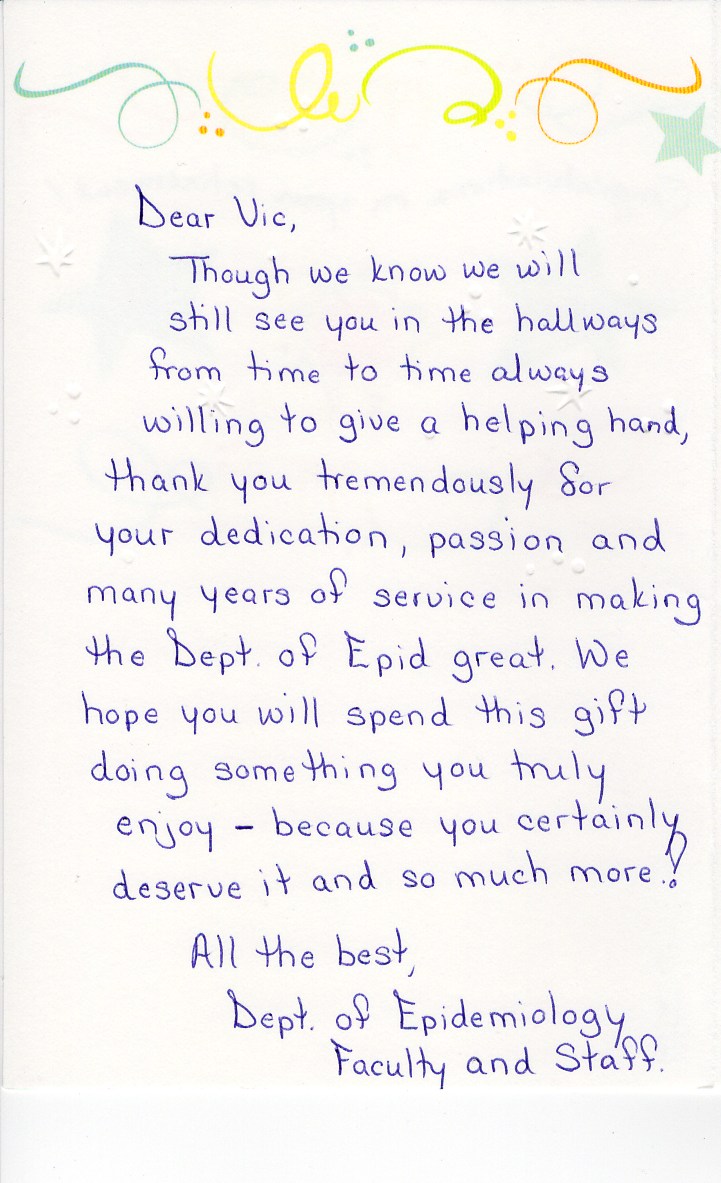 Dear Vic,
Though we know we will
still see you in the hallways
from time to time always
willing to give a helping hand,
thank you tremendously for
your dedication, passion and
many years of service in making
the Dept. of Epid great. We
hope you will spend this gift
doing something you truly
enjoy – because you certainly
deserve it and so much more!
All the best,
Dept. of Epidemiology
Faculty and Staff.